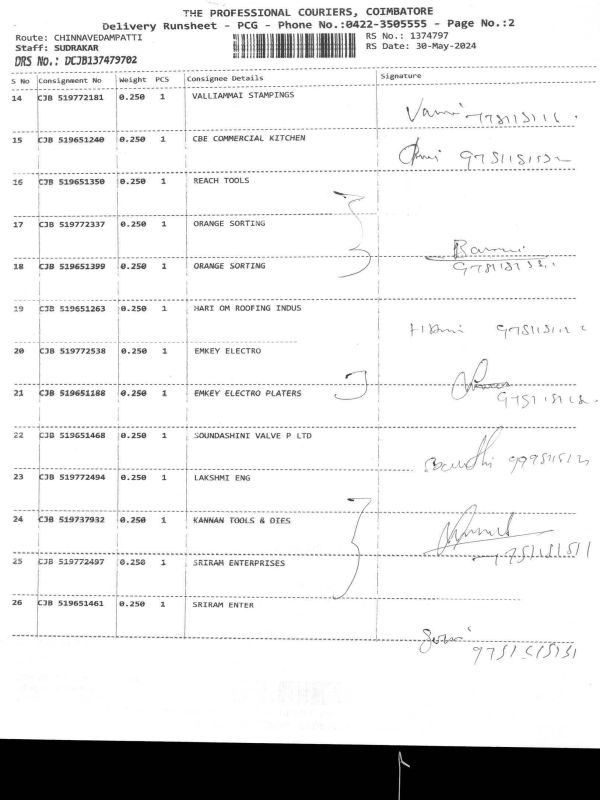 THE PROFESSIONAL COURIERS, COIMBATORE
Delivery Runsheet - PCG - Phone No.:0422-3505555 - Page No.:2
Route: CHINNAVEDAMPATTI RS No.: 1374797
Staff: SUDRAKAR RS Date: 30-May-2024
DRS No.: DCJB137479702
S No Consignment No Weight PCS Consignee Details Signature
14 CJB 519772181 0.250 1 VALLIAMMAI STAMPINGS
15 CJB 519651240 0.250 1 CBE COMMERCIAL KITCHEN
16 CJB 519651350 0.250 1 REACH TOOLS
17 CJB 519772337 0.250 1 ORANGE SORTING
18 CJB 519651399 0.250 1 ORANGE SORTING
19 CJB 519651263 0.250 1 HARI OM ROOFING INDUS
20 CJB 519772538 0.250 1 EMKEY ELECTRO
21 CJB 519651188 0.250 1 EMKEY ELECTRO PLATERS
22 CJB 519651468 0.250 1 SOUNDASHINI VALVE P LTD
23 CJB 519772494 0.250 1 LAKSHMI ENG
24 CJB 519737932 0.250 1 KANNAN TOOLS & DIES
25 CJB 519772497 0.250 1 SRIRAM ENTERPRISES
26 CJB 519651461 0.250 1 SRIRAM ENTER